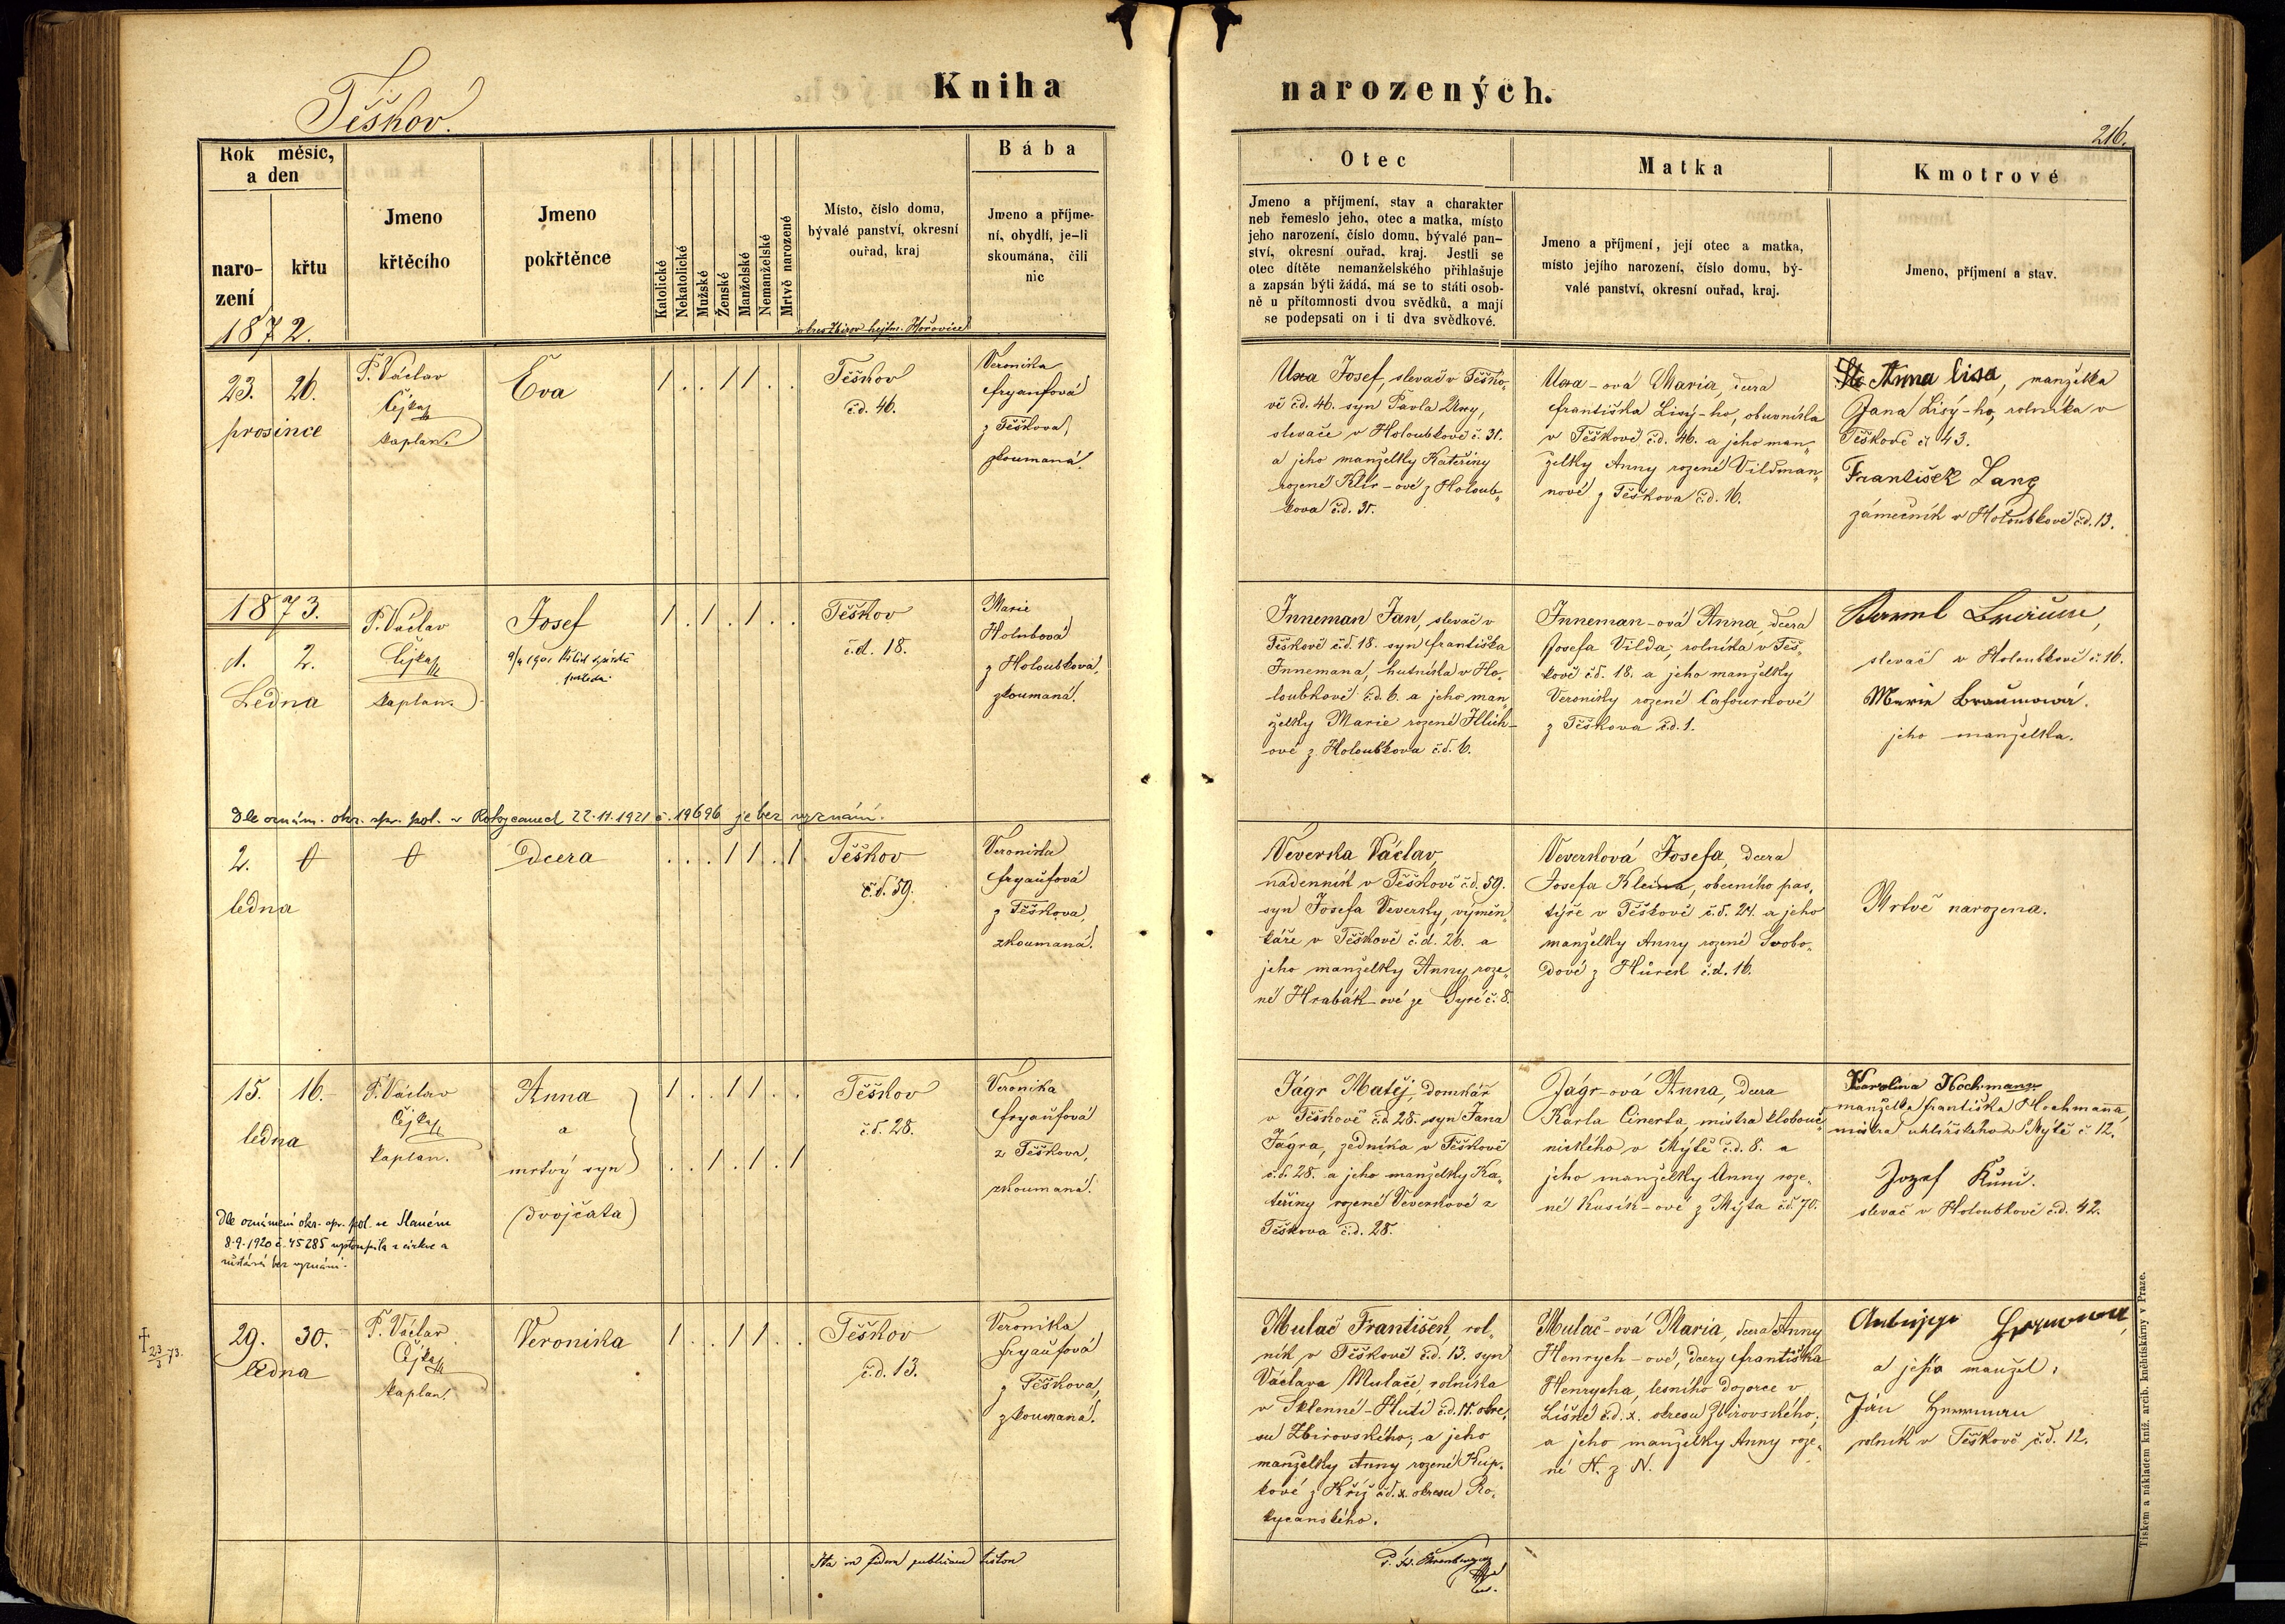 Kniha narozených.
Těškov.
216.
Rok měsíc, a den
narození
křtu
Jmeno křtěcího
Jmeno pokřtěnce
Katolické
Nekatolické
Mužské
Ženské
Manželské
Nemanželské
Mrtvě narozené
Místo, číslo domu,
bývalé panství, okresní
ouřad, kraj
Bába
Jmeno a příjme-
ní, obydlí, je-li
skoumána, čili
nic
Otec
Jmeno a příjmení, stav a charakter
neb řemeslo jeho, otec a matka, místo
jeho narození, číslo domu, bývalé pan-
ství, okresní ouřad, kraj. Jestli se
otec dítěte nemanželského přihlašuje
a zapsán býti žádá, má se to státi osob-
ně u přítomnosti dvou svědků, a mají
se podepsati on i ti dva svědkové.
Matka
Jmeno a příjmení, její otec a matka,
místo jejího narození, číslo domu, bý-
valé panství, okresní ouřad, kraj.
Kmotrové
Jmeno, příjmení a stav.
1872.
hejtm. Hořovice
23. 26.
prosince
P. Václav
Čejka
kaplan.
Eva
1 . . 1 1 . .
Těškov
č.d. 46.
Veronika
Fryaufová
z Těškova,
zkoumaná.
Uxa Josef, slevač v Těško-
vě č.d. 46. syn Pavla Uxy,
slevače v Holoubkově č. 31.
a jeho manželky Kateřiny
rozené Klír-ové z Holoub-
kova č.d. 31.
Uxa-ová Maria, dcera
Františka Lisý-ho, obuvníka
v Těškově č.d. 46. a jeho man-
želky Anny rozené Vildman-
nové z Těškova č.d. 16.
Anna Lisá, manželka
Jana Lisý-ho, rolníka v
Těškově č. 43.
František Lang
zámečník v Holoubkově č.d. 13.
1873.
1. 2.
Ledna
P. Václav
Čejka
kaplan.
Josef
1 . 1 . 1 . .
Těškov
č.d. 18.
Marie
Holubová
z Holoubkova,
zkoumaná.
Inneman Jan, slevač v
Těškově č.d. 18. syn Františka
Innemana, hutníka v Ho-
loubkově č.d. 6. a jeho man-
želky Marie rozené Illich-
ové z Holoubkova č.d. 6.
Inneman-ová Anna, dcera
Josefa Vilda, rolníka v Těš-
kově č.d. 18. a jeho manželky
Veroniky rozené Cafournové
z Těškova č.d. 1.
slevač v Holoubkově č. 16.
Marie Braunová.
jeho manželka.
Dle oznám. okr. spr. pol. v Rokycanech 22.11.1921 č. 19696 je bez vyznání.
2.
ledna
Dcera
. . . 1 1 . 1
Těškov
č.d. 59.
Veronika
Fryaufová
z Těškova,
zkoumaná.
Veverka Václav,
nádenník v Těškově č.d. 59.
syn Josefa Veverky, výměn-
káře v Těškově č.d. 26. a
jeho manželky Anny roze-
né Hrabák-ové ze Syré č. 8.
Veverková Josefa, dcera
Josefa Kleina, obecního pas-
týře v Těškově č.d. 24. a jeho
manželky Anny rozené Svobo-
dové z Hůrek č.d. 16.
Mrtvě narozena.
15. 16.
ledna
P. Václav
Čejka
kaplan.
Anna
a
mrtvý syn
(dvojčata)
1 . . 1 1 . .
. . 1 . 1 . 1
Těškov
č.d. 28.
Veronika
Fryaufová
z Těškova,
zkoumaná.
Jágr Matěj, domkář
v Těškově č.d. 28. syn Jana
Jágra, zedníka v Těškově
č.d. 28. a jeho manželky Ka-
teřiny rozené Veverkové z
Těškova č.d. 28.
Jágr-ová Anna, dcera
Karla Cinerta, mistra klobouč-
nického v Mýtě č.d. 8. a
jeho manželky Anny roze-
né Kusík-ové z Mýta č.d. 70.
Karolina Hochmann
manželka Františka Hochmanna,
mistra uhlířského v Mýtě č. 12.
Jozef Kůní.
slevač v Holoubkově č.d. 42.
Dle oznámení okr. spr. pol. ve Slaném
8.9.1920 č. 45285 vystoupila z církve a
zůstává bez vyznání.
† 23/3 73.
29. 30.
ledna
P. Václav
Čejka
kaplan.
Veronika
1 . . 1 1 . .
Těškov
č.d. 13.
Veronika
Fryaufová
z Těškova,
zkoumaná.
Mulač František, rol-
ník v Těškově č.d. 13. syn
Václava Mulače, rolníka
v Sklenné-Huti č.d. 15. okre-
su Zbirovského; a jeho
manželky Anny rozené Kup-
kové z Kříž č.d. x. okresu Ro-
kycanského.
Mulač-ová Maria, dcera Anny
Henrych-ové, dcery Františka
Henrycha, lesního dozorce v
Líšné č.d. x. okresu Zbirovského,
a jeho manželky Anny roze-
né N. z N.
a její manžel,
Ján Herrman
rolník v Těškově č.d. 12.
Ita in fidem publicam testor
Tiskem a nákladem kníž. arcib. knihtiskárny v Praze.